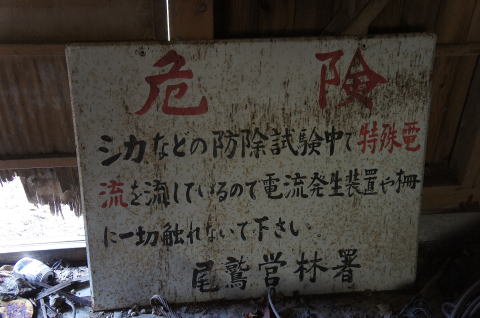 危険
シカなどの防除試験中で特殊電
流を流しているので電流発生装置や柵
に一切触れないで下さい.
尾鷲営林署